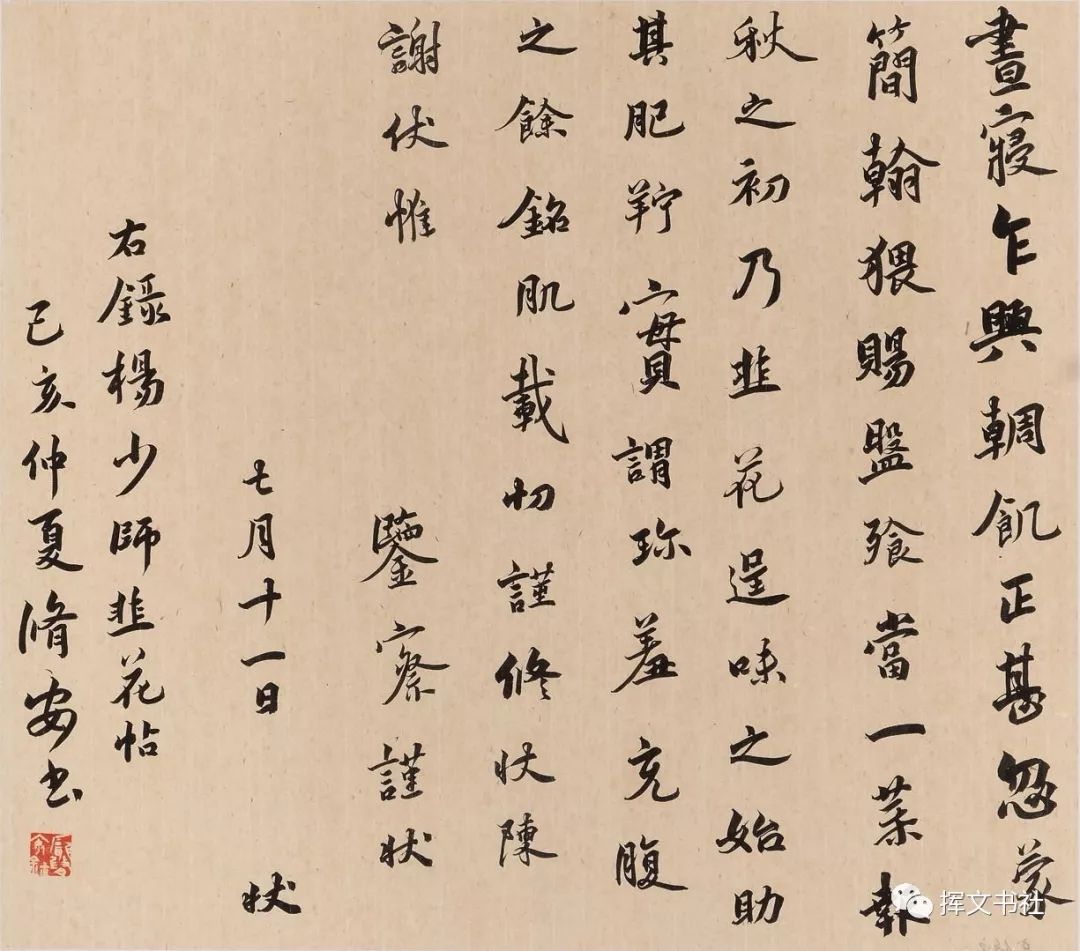 晝寢乍興輖飢正甚忽蒙
簡翰猥賜盤飱當一葉報
秋之初乃韭花逞味之始助
其肥羜實謂珎羞充腹
之餘銘肌載切謹修狀陳
謝伏惟
鑒察謹狀
七月十一日
狀
右録楊少師韭花帖
己亥仲夏脩安书
挥文书社